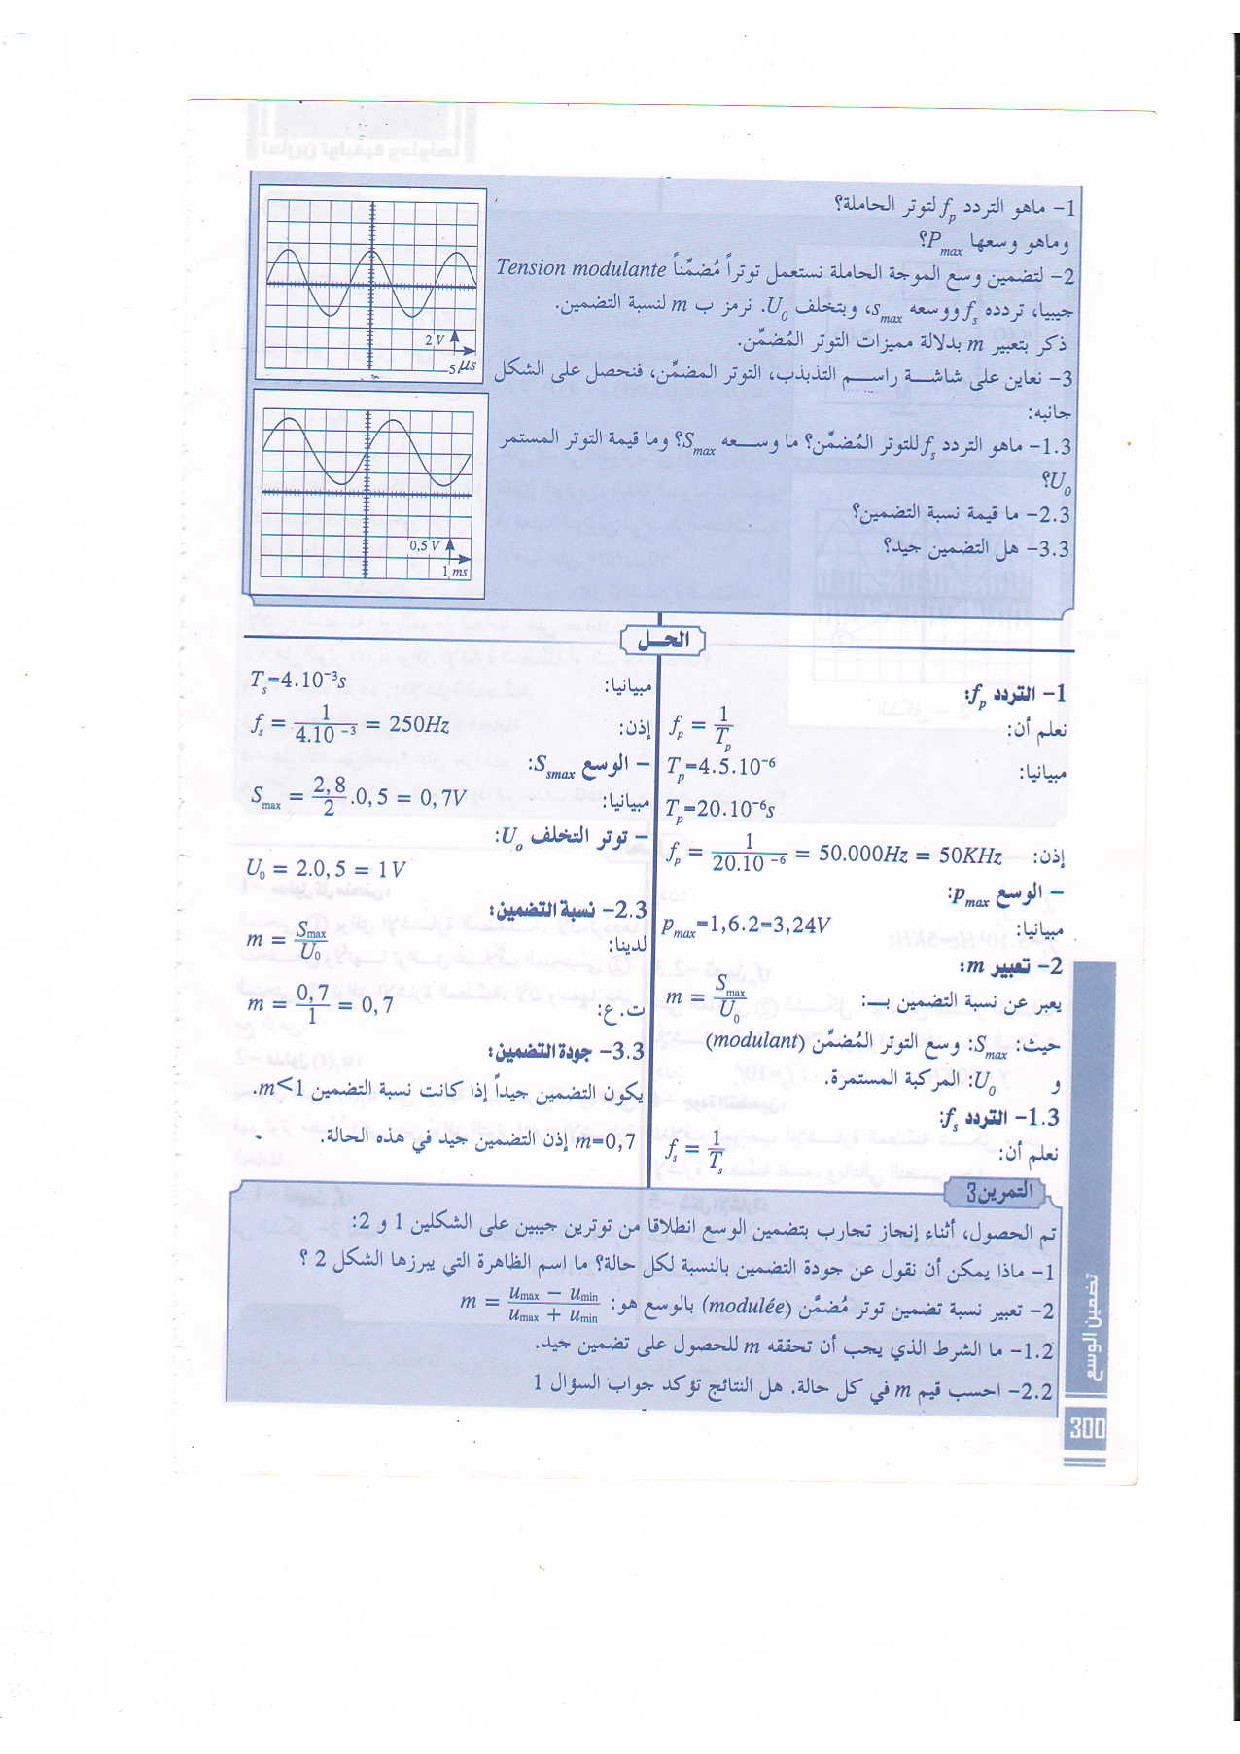 1- ماهو التردد fp لتوتر الحاملة؟
وماهو وسعها Pmax؟
2- لتضمين وسع الموجة الحاملة نستعمل توتراً مُضمِّناً Tension modulante
جيبيا، تردده fs ووسعه smax، وبتخلف U0. نرمز ب m لنسبة التضمين.
ذكر بتعبير m بدلالة مميزات التوتر المُضمِّن.
3- نعاين على شاشة راسم التذبذب، التوتر المضمِّن، فنحصل على الشكل
جانبه:
1.3- ماهو التردد fs للتوتر المُضمِّن؟ ما وسعه Smax؟ وما قيمة التوتر المستمر
U0؟
2.3- ما قيمة نسبة التضمين؟
3.3- هل التضمين جيد؟
2 V
5 μs
0,5 V
1 ms
الحل
1- التردد fp:
نعلم أن: fp = 1/Tp
مبيانيا: Tp=4.5.10⁻⁶
Tp=20.10⁻⁶s
إذن: fp = 1/20.10⁻⁶ = 50.000Hz = 50KHz
- الوسع pmax:
مبيانيا: pmax=1,6.2=3,24V
2- تعبير m:
يعبر عن نسبة التضمين بـ: m = Smax/U0
حيث: Smax: وسع التوتر المُضمِّن (modulant)
و U0: المركبة المستمرة.
1.3- التردد fs:
نعلم أن: fs = 1/Ts
مبيانيا: Ts=4.10⁻³s
إذن: fs = 1/4.10⁻³ = 250Hz
- الوسع Ssmax:
مبيانيا: Smax = 2,8/2.0,5 = 0,7V
- توتر التخلف Uo:
U0 = 2.0,5 = 1V
2.3- نسبة التضمين:
لدينا: m = Smax/U0
ت.ع: m = 0,7/1 = 0,7
3.3- جودة التضمين:
يكون التضمين جيداً إذا كانت نسبة التضمين m<1.
m=0,7 إذن التضمين جيد في هذه الحالة.
التمرين3
تم الحصول، أثناء إنجاز تجارب بتضمين الوسع انطلاقا من توترين جيبين على الشكلين 1 و 2:
1- ماذا يمكن أن نقول عن جودة التضمين بالنسبة لكل حالة؟ ما اسم الظاهرة التي يبرزها الشكل 2 ؟
2- تعبير نسبة تضمين توتر مُضمَّن (modulée) بالوسع هو: m = umax − umin/umax + umin
1.2- ما الشرط الذي يجب أن تحققه m للحصول على تضمين جيد.
2.2- احسب قيم m في كل حالة. هل النتائج تؤكد جواب السؤال 1
تضمين الوسع
300